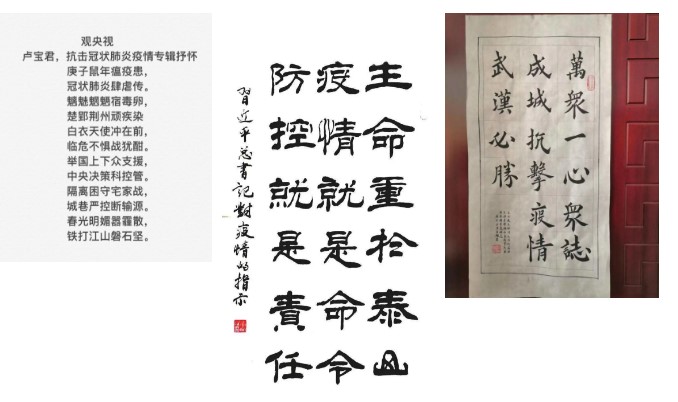 观央视
卢宝君，抗击冠状肺炎疫情专辑抒怀
庚子鼠年瘟疫患，
冠状肺炎肆虐传。
魑魅魍魉宿毒卵，
楚郢荆州顽疾染
白衣天使冲在前，
临危不惧战犹酣。
举国上下众支援，
中央决策科控管。
隔离困守宅家战，
城巷严控断输源。
春光明媚嚣霾散，
铁打江山磐石坚。
生命重於泰山
疫情就是命令
防控就是責任
習近平总書記對疫情的指示
萬衆一心衆誌
成城抗擊疫情
武漢必勝